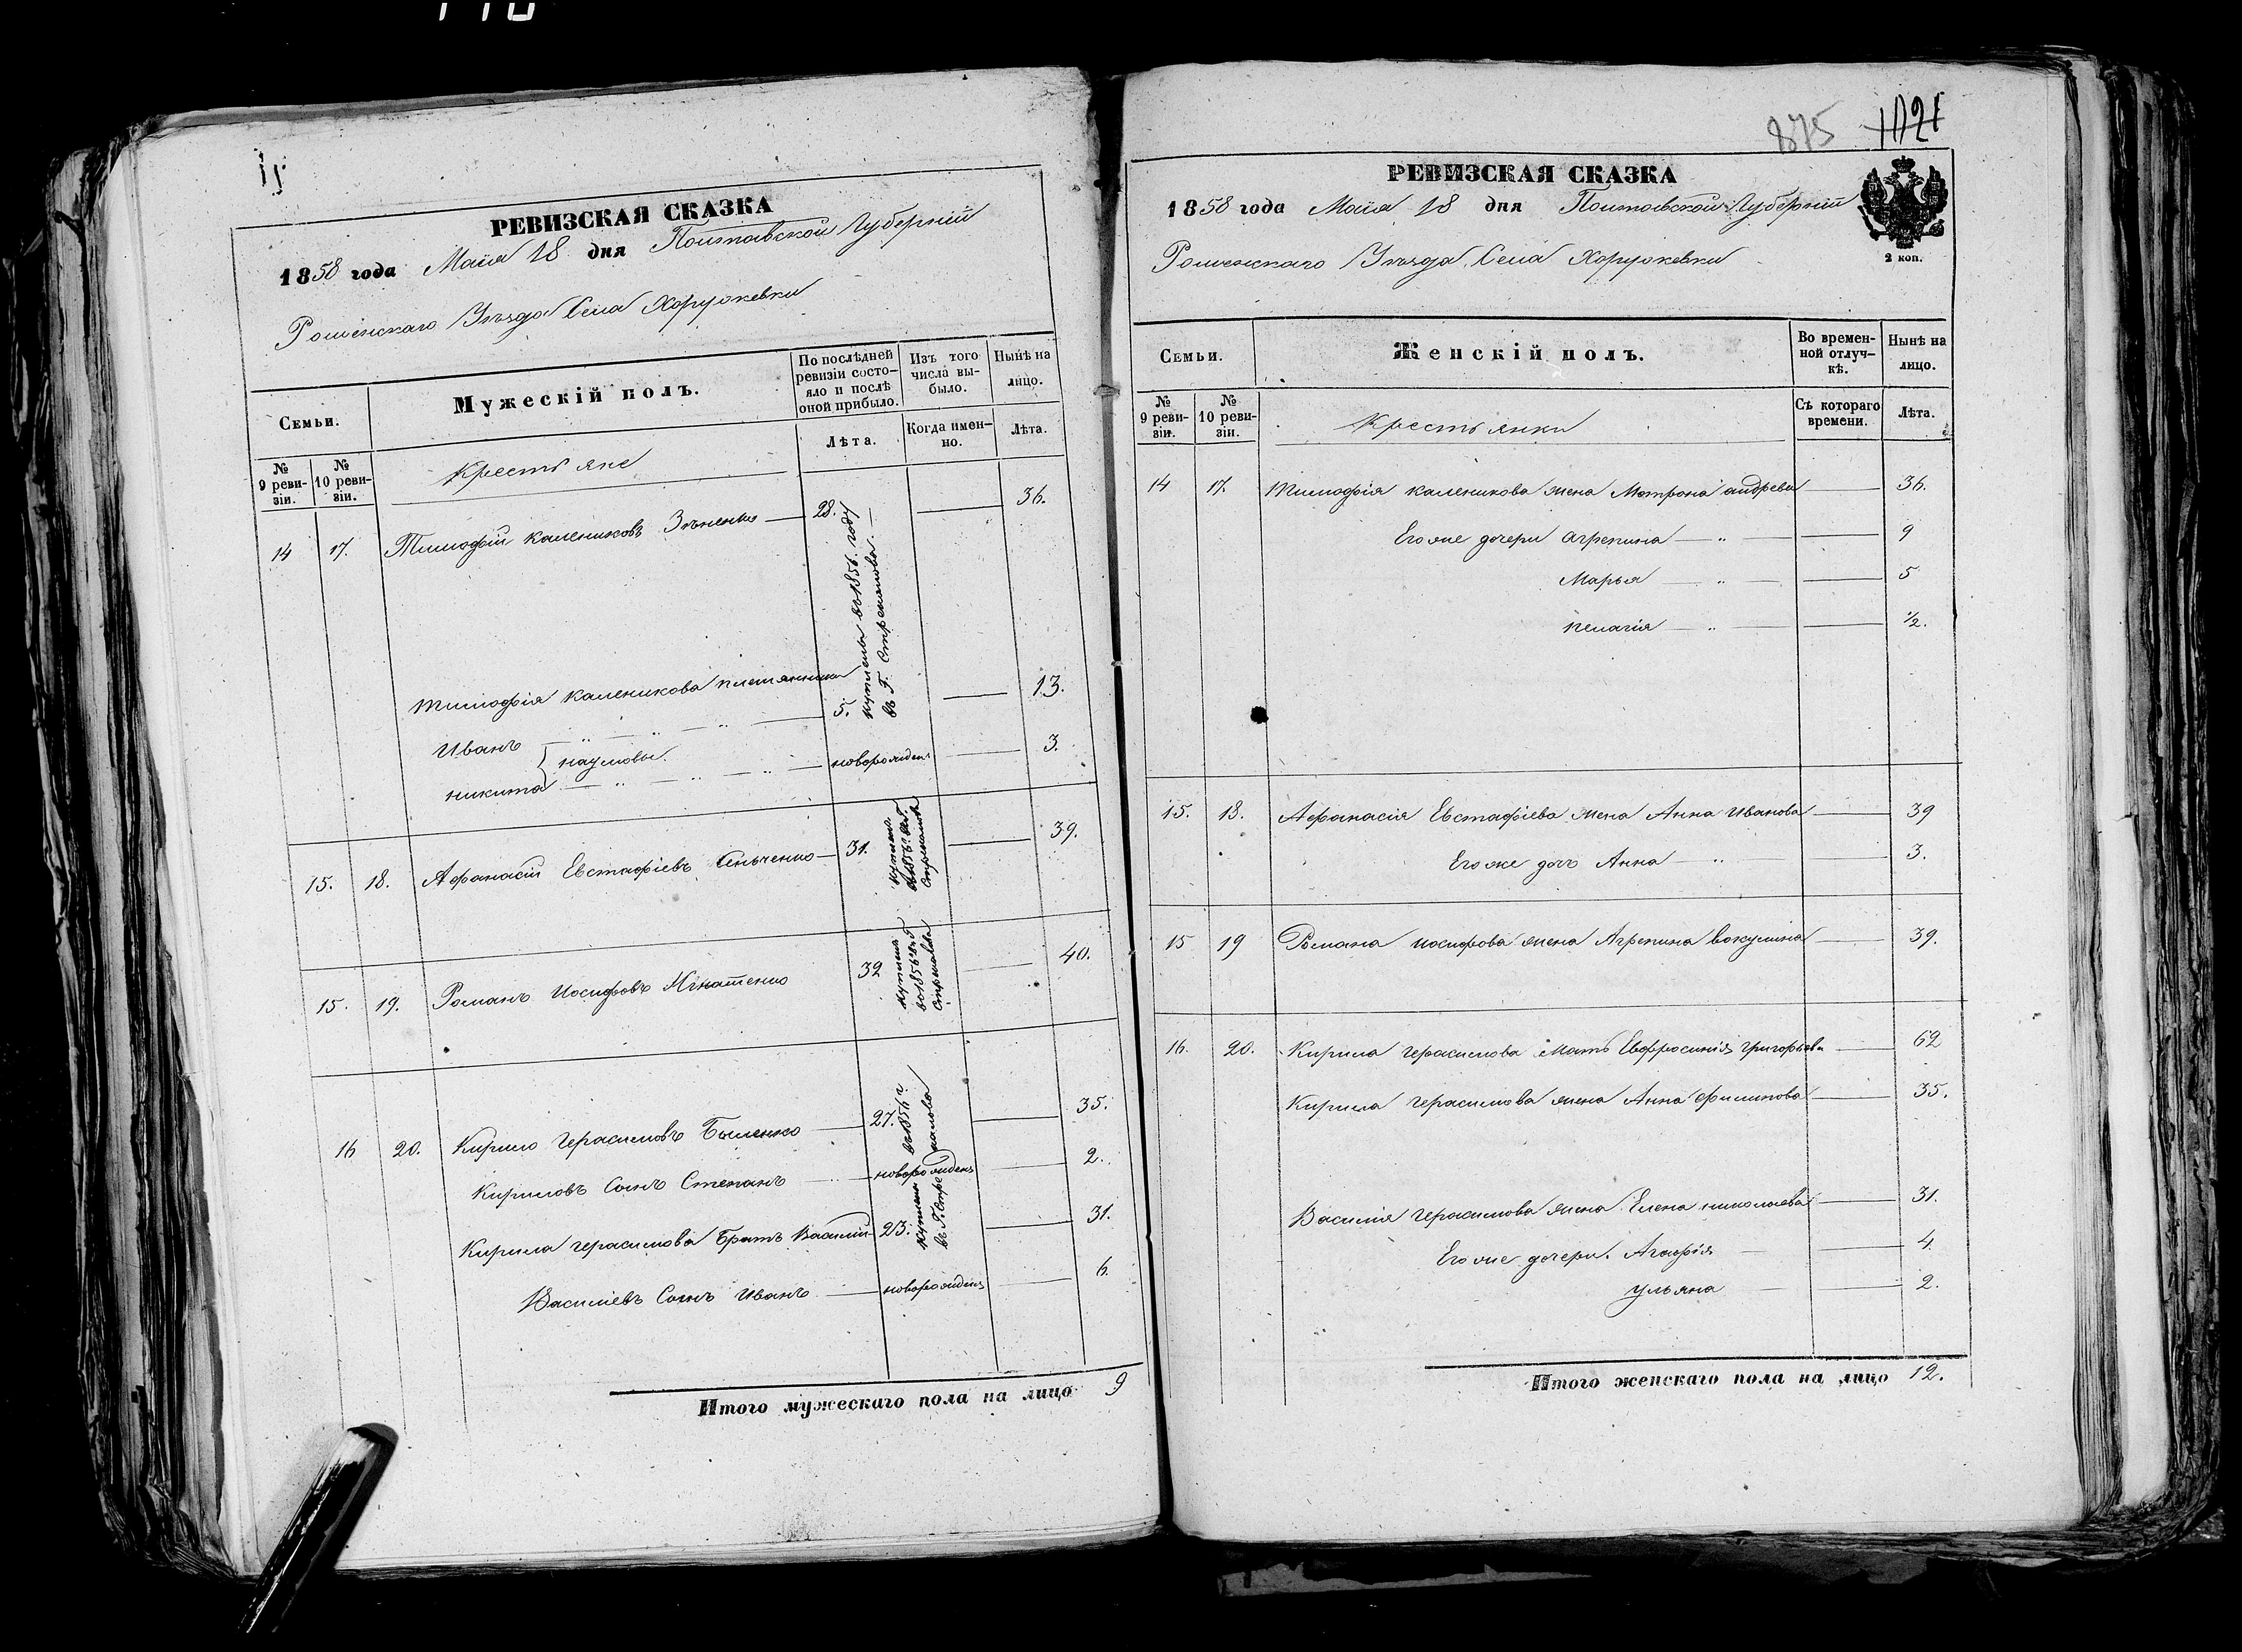 РЕВИЗСКАЯ СКАЗКА
1858 года Маія 18 дня Полтавской Губерніи
Роменскаго Уѣзда Села Хоружевки
Семьи.
Мужескій полъ.
По послѣдней ревизіи состо-яло и послѣ оной прибыло.
Изъ того числа вы-было.
Нынѣ на лицо.
№ 9 реви-зіи.
№ 10 реви-зіи.
Лѣта.
Когда имен-но.
Лѣта.
Крестьяне
14 17. Тимофій Калениковъ 28. 36.
куплены во 1856. году
въ Г. Стремоухова
Тимофія Каленикова племянники
Иванъ 5. 13.
Наумовы.
Никита новорожден. 3.
15. 18. Афанасій Евстафіевъ 31. 39.
15. 19. Романъ Иосифовъ Игнатенко 32 40.
16 20. Кирило Герасимовъ Быленко 27. 35.
Кириловъ Сынъ Степанъ новорожденъ 2.
Кирила Герасимова Братъ Василий 23. 31.
Василіевъ Сынъ Иванъ новорожденъ 6.
Итого мужескаго пола на лицо 9
875 1021
РЕВИЗСКАЯ СКАЗКА
1858 года Маія 18 дня Полтавской Губерніи
2 коп.
Роменскаго Уѣзда Села Хоружевки
Семьи.
Женскій полъ.
Во времен-ной отлуч-кѣ.
Нынѣ на лицо.
№ 9 реви-зіи.
№ 10 реви-зіи.
Крестьянки
Съ котораго времени.
Лѣта.
14 17. Тимофія Каленикова жена Матрона Андреева 36.
Его же дочери Агрепина 9
Марья 5
Пелагія 1/2.
15. 18. Афанасія Евстафіева жена Анна Иванова 39
Его же дочь Анна 3.
15 19 Романа Иосифова жена Агрепина Вакулина 39.
16. 20. Кирила Герасимова Мать Евфросинія Григорьева 62
Кирила Герасимова жена Анна Филипова 35.
Василія Герасимова жена Елена Николаева 31.
Его же дочери. Агафія 4
Ульяна 2.
Итого женскаго пола на лицо 12.